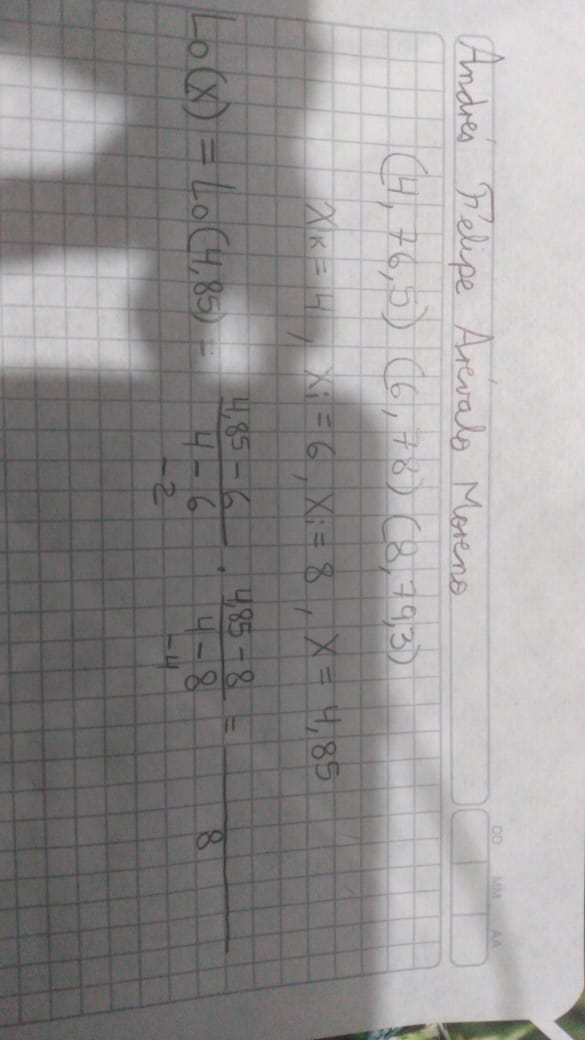 DD MM AA
Andrés Felipe Arévalo Moreno
(4, 76,5) (6, 78) (8, 79,3)
Xk = 4 , Xi = 6 , Xi = 8 , X = 4,85
Lo(x) = Lo(4,85) = 4,85 - 6 / 4 - 6 · 4,85 - 8 / 4 - 8 = ___ / 8
-2 -4